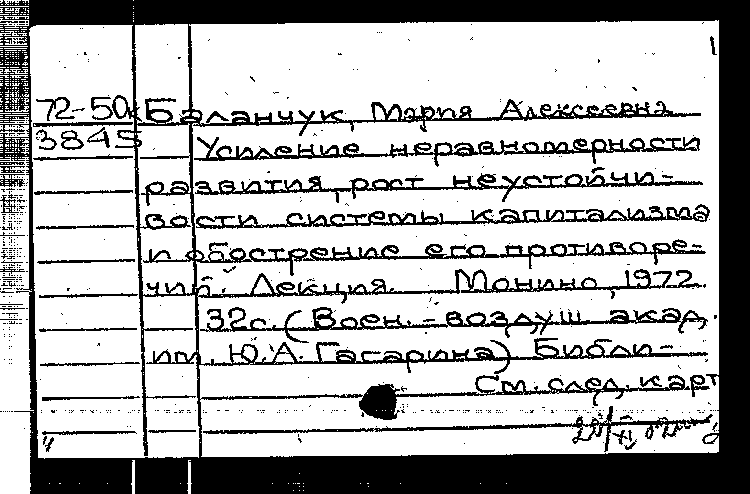 1
72-50к Баланчук, Мария Алексеевна
3845 Усиление неравномерности
развития, рост неустойчи-
вости системы капитализма
и обострение его противоре-
чий. Лекция. Монино, 1972.
32с. (Воен.-воздуш. акад.
им. Ю.А. Гагарина) Библи-
См. след. карт